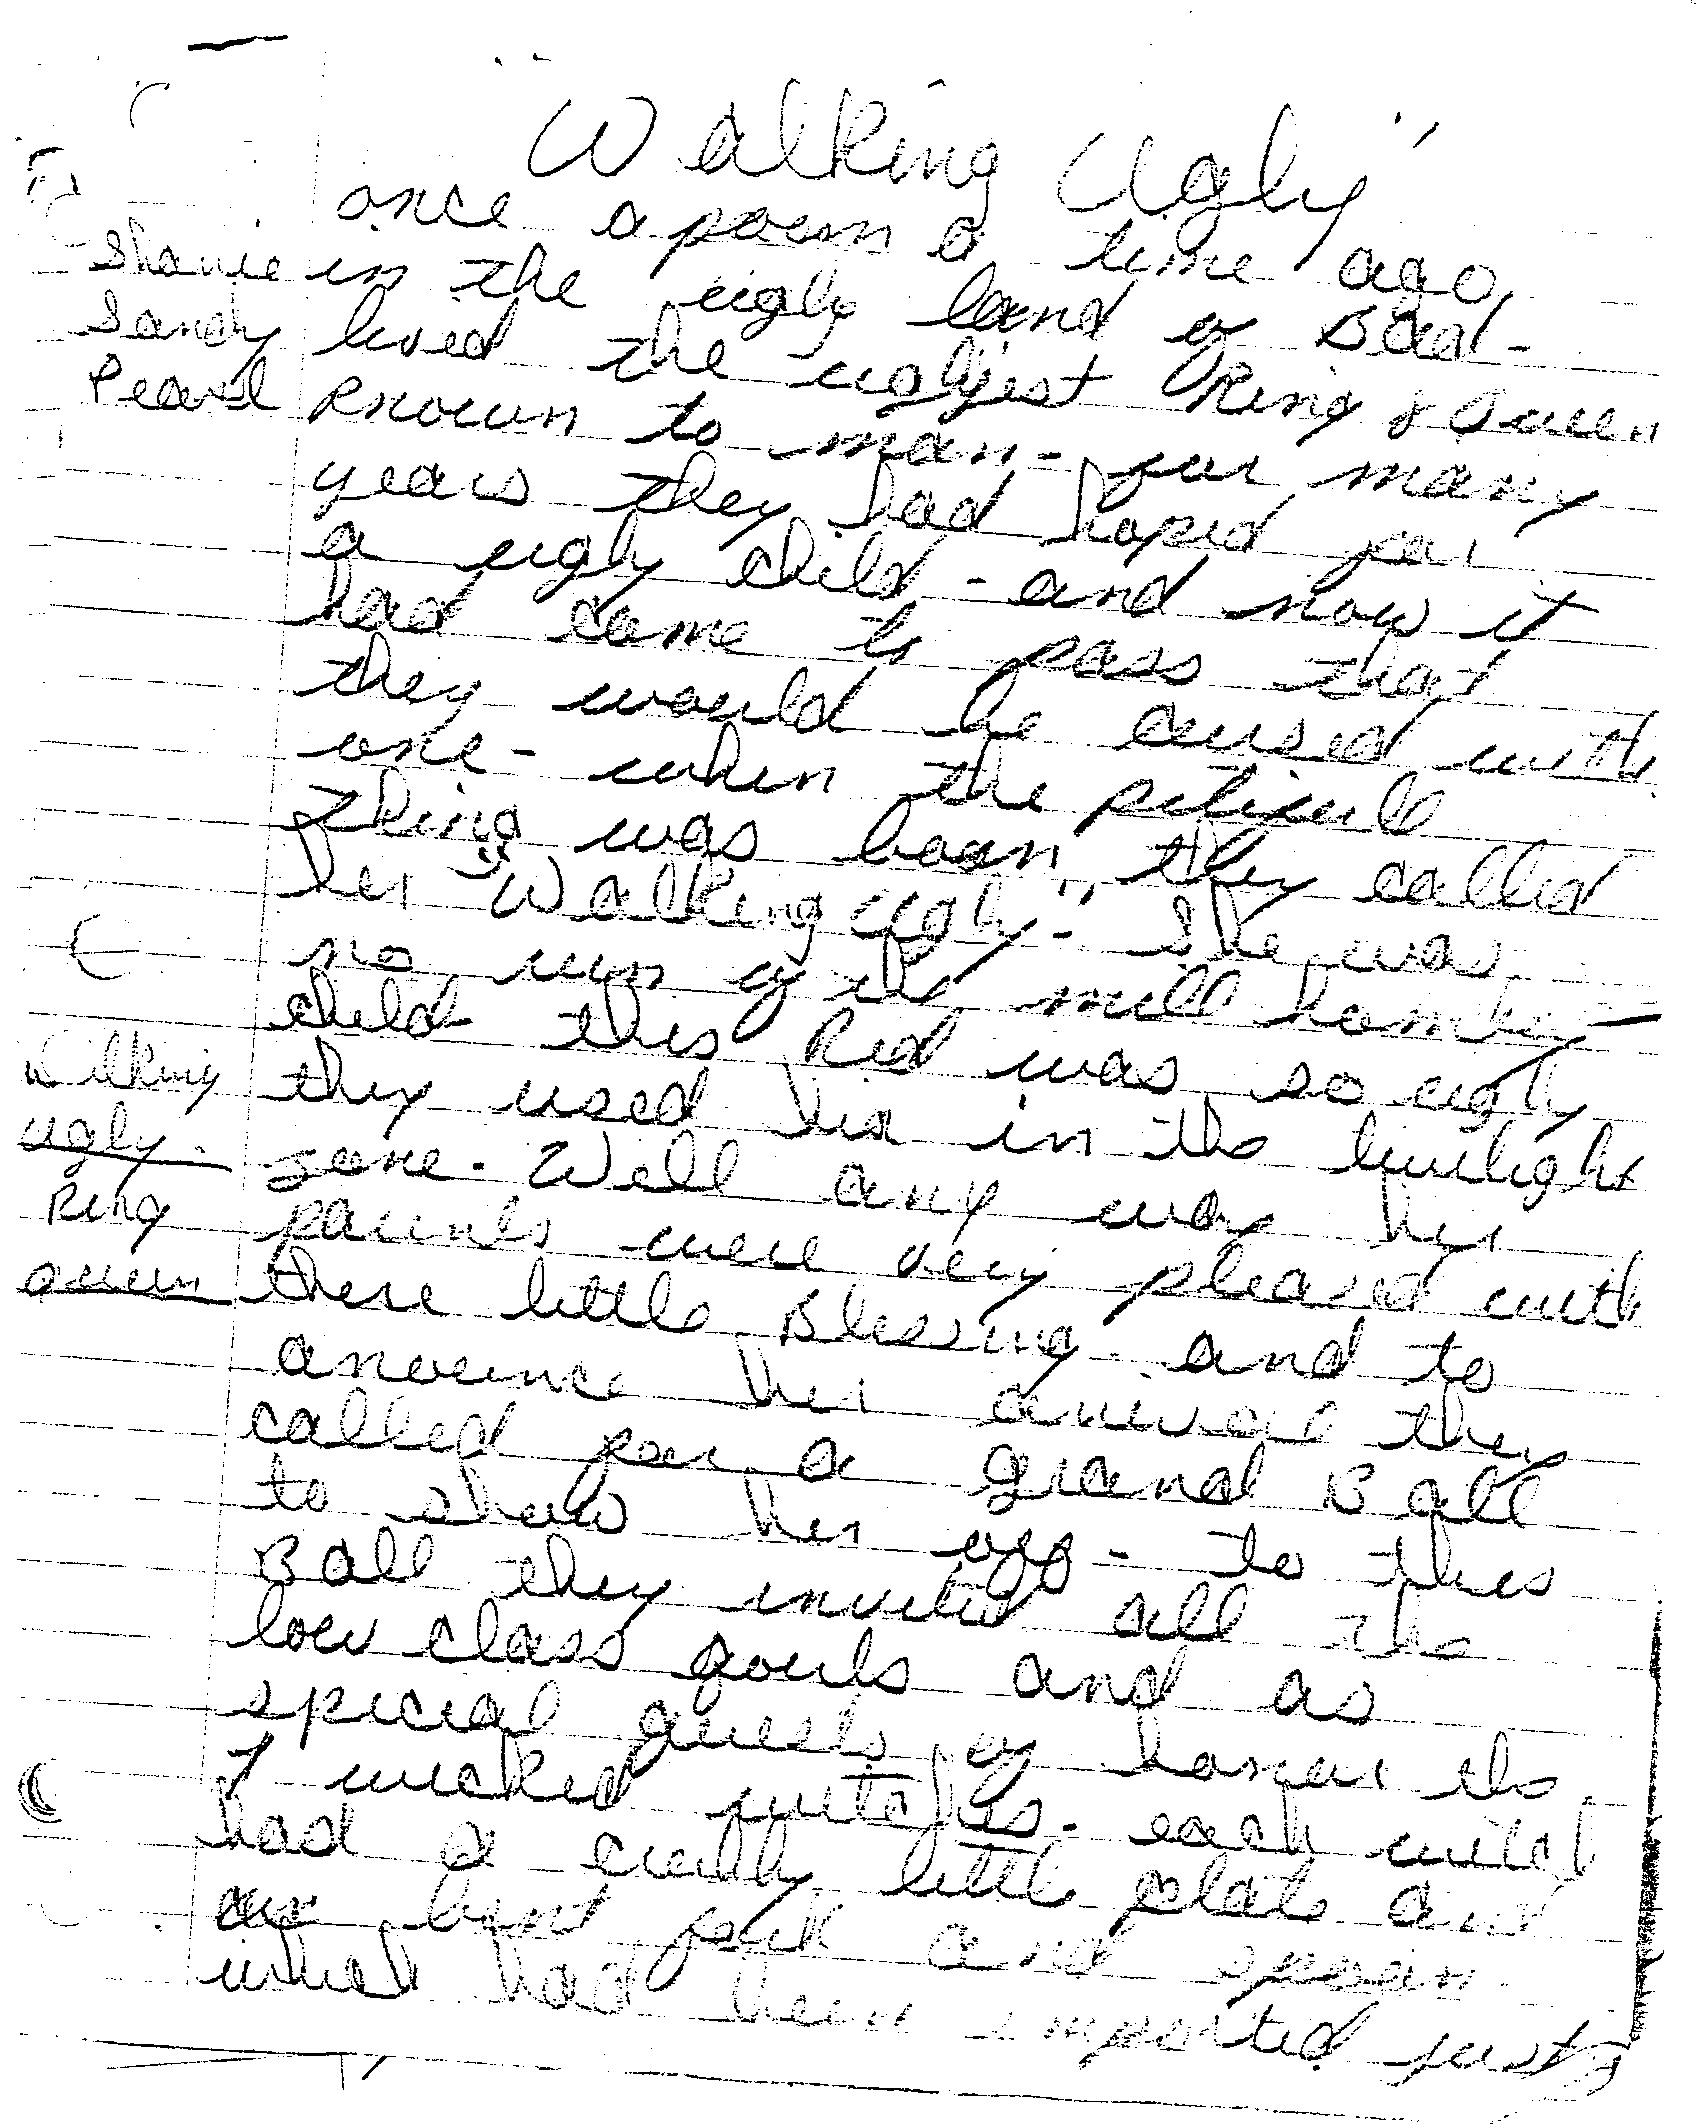 "Walking Ugly"
once apoun a time ago,
Shavie in the ugly land of Bad-
Sandy lived the uglyest King & Queen
Pearl known to man- for many
years they had hoped for
a ugly child- and now it
had come to pass that
they would be cursed with
one- when the pitifull
thing was born, they called
her "Walking Ugly"- She was
no run of the mill homley
child- this kid was so ugly
Walking they used her in the twilight
ugly- zone. Well any way her
King parents were very pleased with
Queen there little Blessing. and to
anounce her arival they
called for a grand Ball
to show her off- to this
Ball they invited all the
low class gouls and as
special guests of honor the
7 wicked witches. each witch
had a cruddy little plate and
bent fork and spoon.
which had been imported just